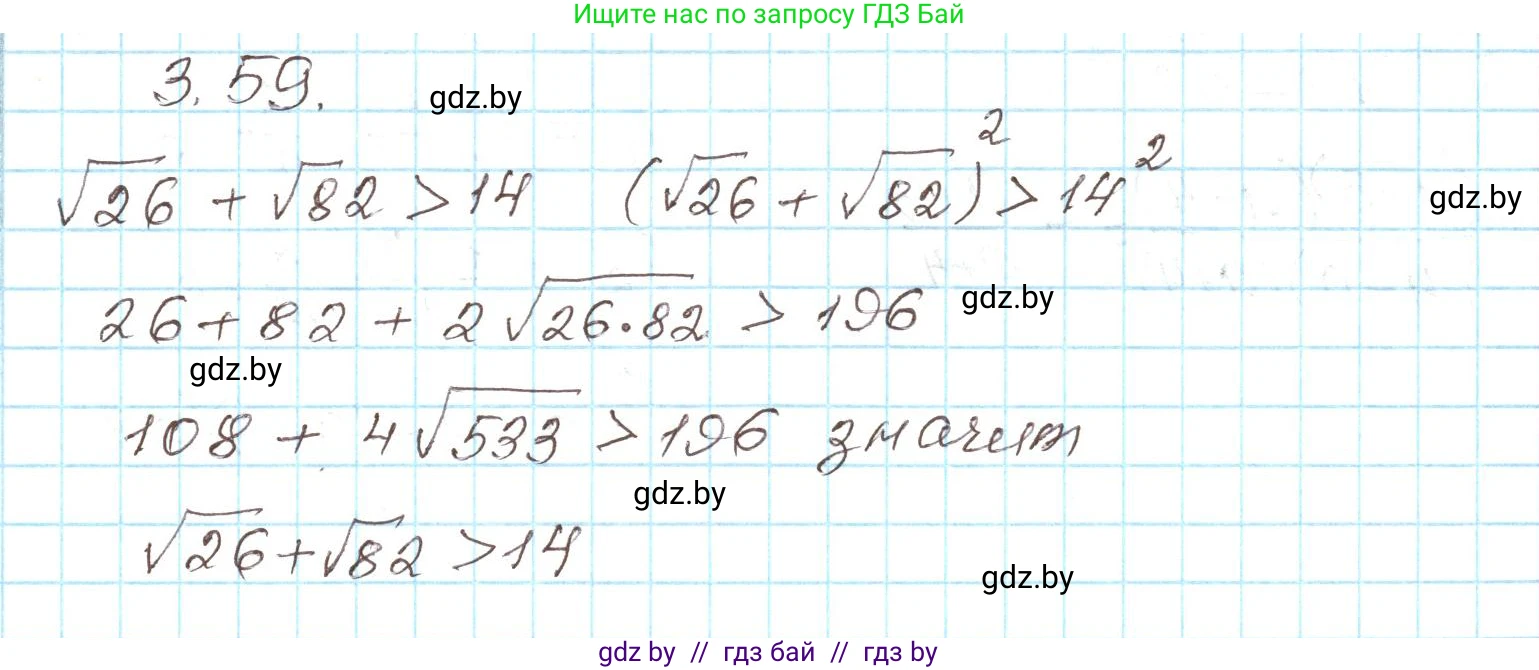 Ищите нас по запросу ГДЗ Бай
3.59.
gdz.by
√26 + √82 > 14 (√26 + √82)² > 14²
gdz.by
26 + 82 + 2√26·82 > 196
gdz.by
gdz.by
108 + 4√533 > 196 значит
gdz.by
√26 + √82 > 14
gdz.by
gdz by // гдз бай // гдз by